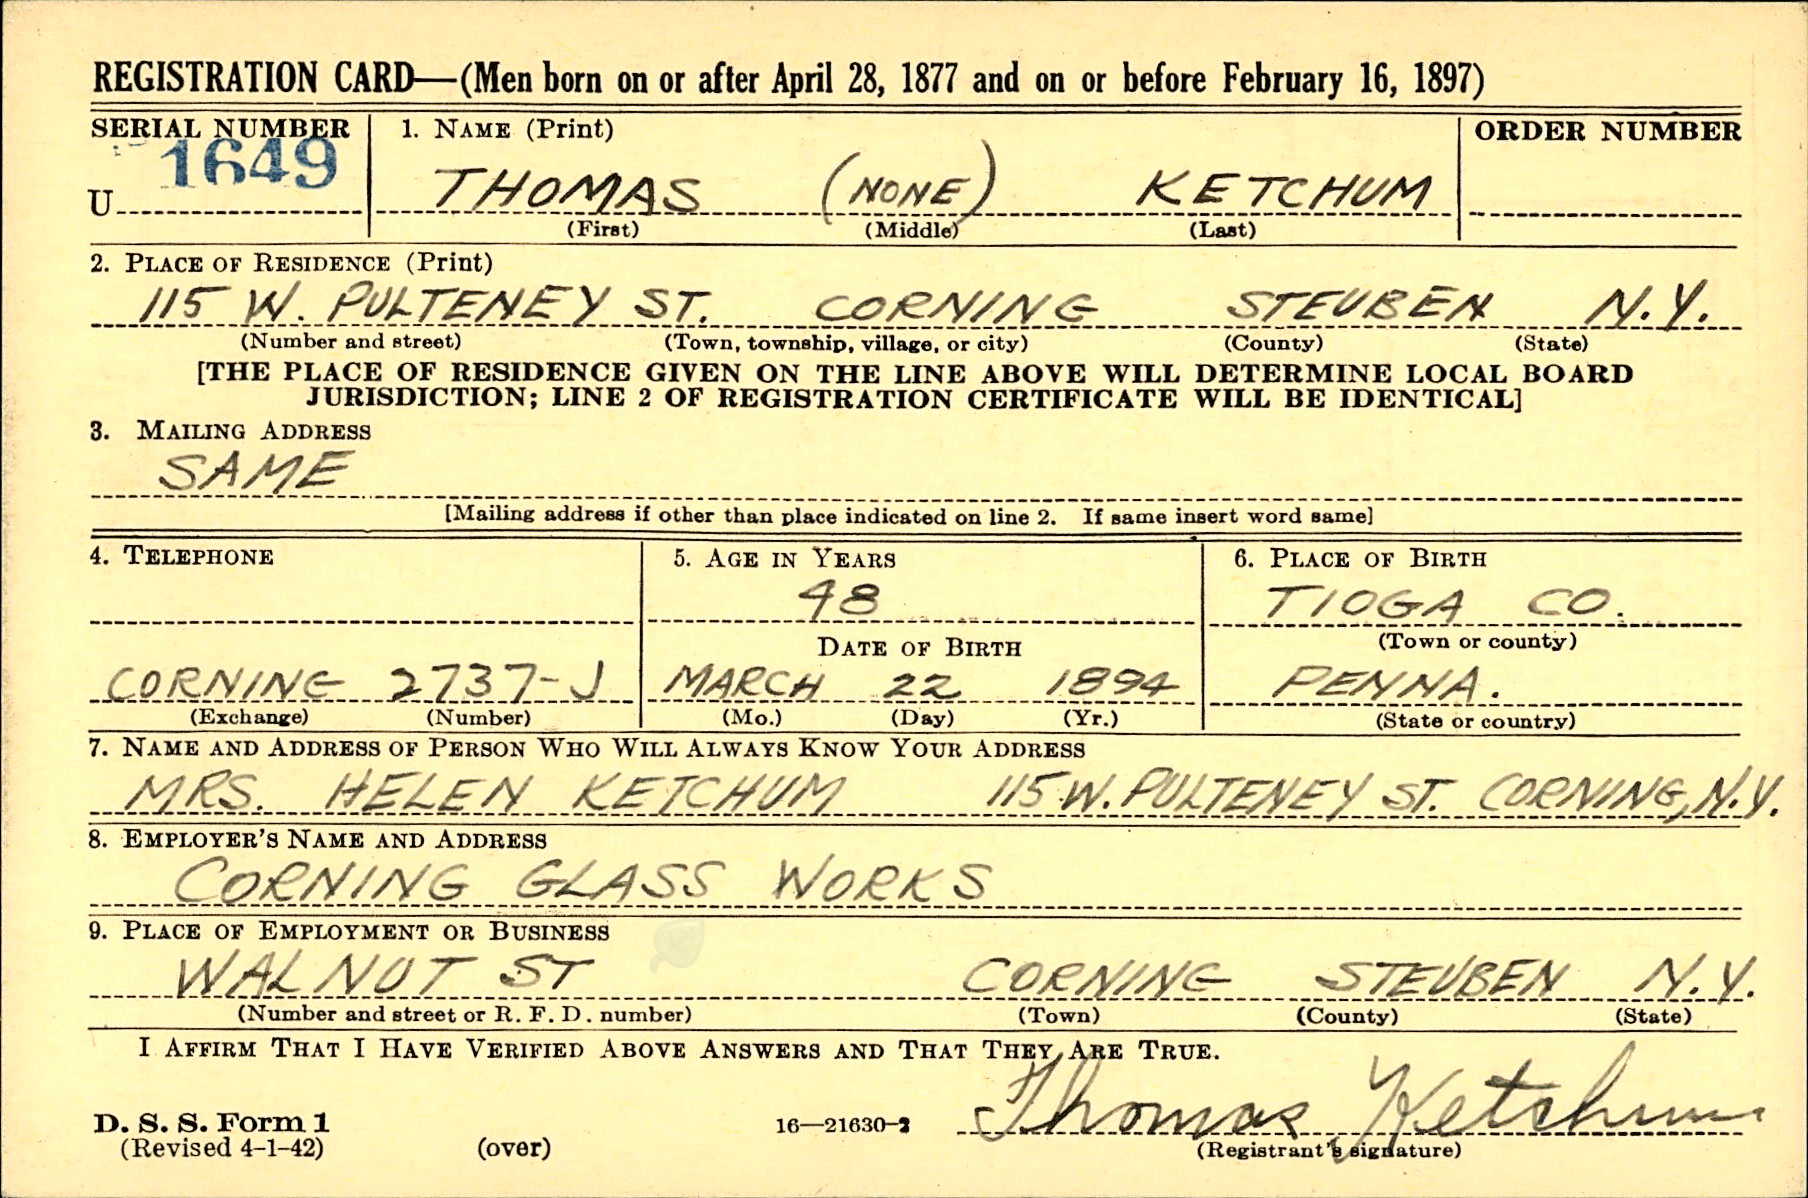 REGISTRATION CARD—(Men born on or after April 28, 1877 and on or before February 16, 1897)
SERIAL NUMBER 1. NAME (Print) ORDER NUMBER
1649
U THOMAS (NONE) KETCHUM
(First) (Middle) (Last)
2. PLACE OF RESIDENCE (Print)
115 W. PULTENEY ST. CORNING STEUBEN N.Y.
(Number and street) (Town, township, village, or city) (County) (State)
[THE PLACE OF RESIDENCE GIVEN ON THE LINE ABOVE WILL DETERMINE LOCAL BOARD
JURISDICTION; LINE 2 OF REGISTRATION CERTIFICATE WILL BE IDENTICAL]
3. MAILING ADDRESS
SAME
[Mailing address if other than place indicated on line 2. If same insert word same]
4. TELEPHONE 5. AGE IN YEARS 6. PLACE OF BIRTH
48 TIOGA CO.
DATE OF BIRTH (Town or county)
CORNING 2737-J MARCH 22 1894 PENNA.
(Exchange) (Number) (Mo.) (Day) (Yr.) (State or country)
7. NAME AND ADDRESS OF PERSON WHO WILL ALWAYS KNOW YOUR ADDRESS
MRS. HELEN KETCHUM 115 W. PULTENEY ST. CORNING, N.Y.
8. EMPLOYER'S NAME AND ADDRESS
CORNING GLASS WORKS
9. PLACE OF EMPLOYMENT OR BUSINESS
WALNUT ST CORNING STEUBEN N.Y.
(Number and street or R. F. D. number) (Town) (County) (State)
I AFFIRM THAT I HAVE VERIFIED ABOVE ANSWERS AND THAT THEY ARE TRUE.
Thomas Ketchum
D. S. S. Form 1 16—21630-2
(Revised 4-1-42) (over) (Registrant's signature)